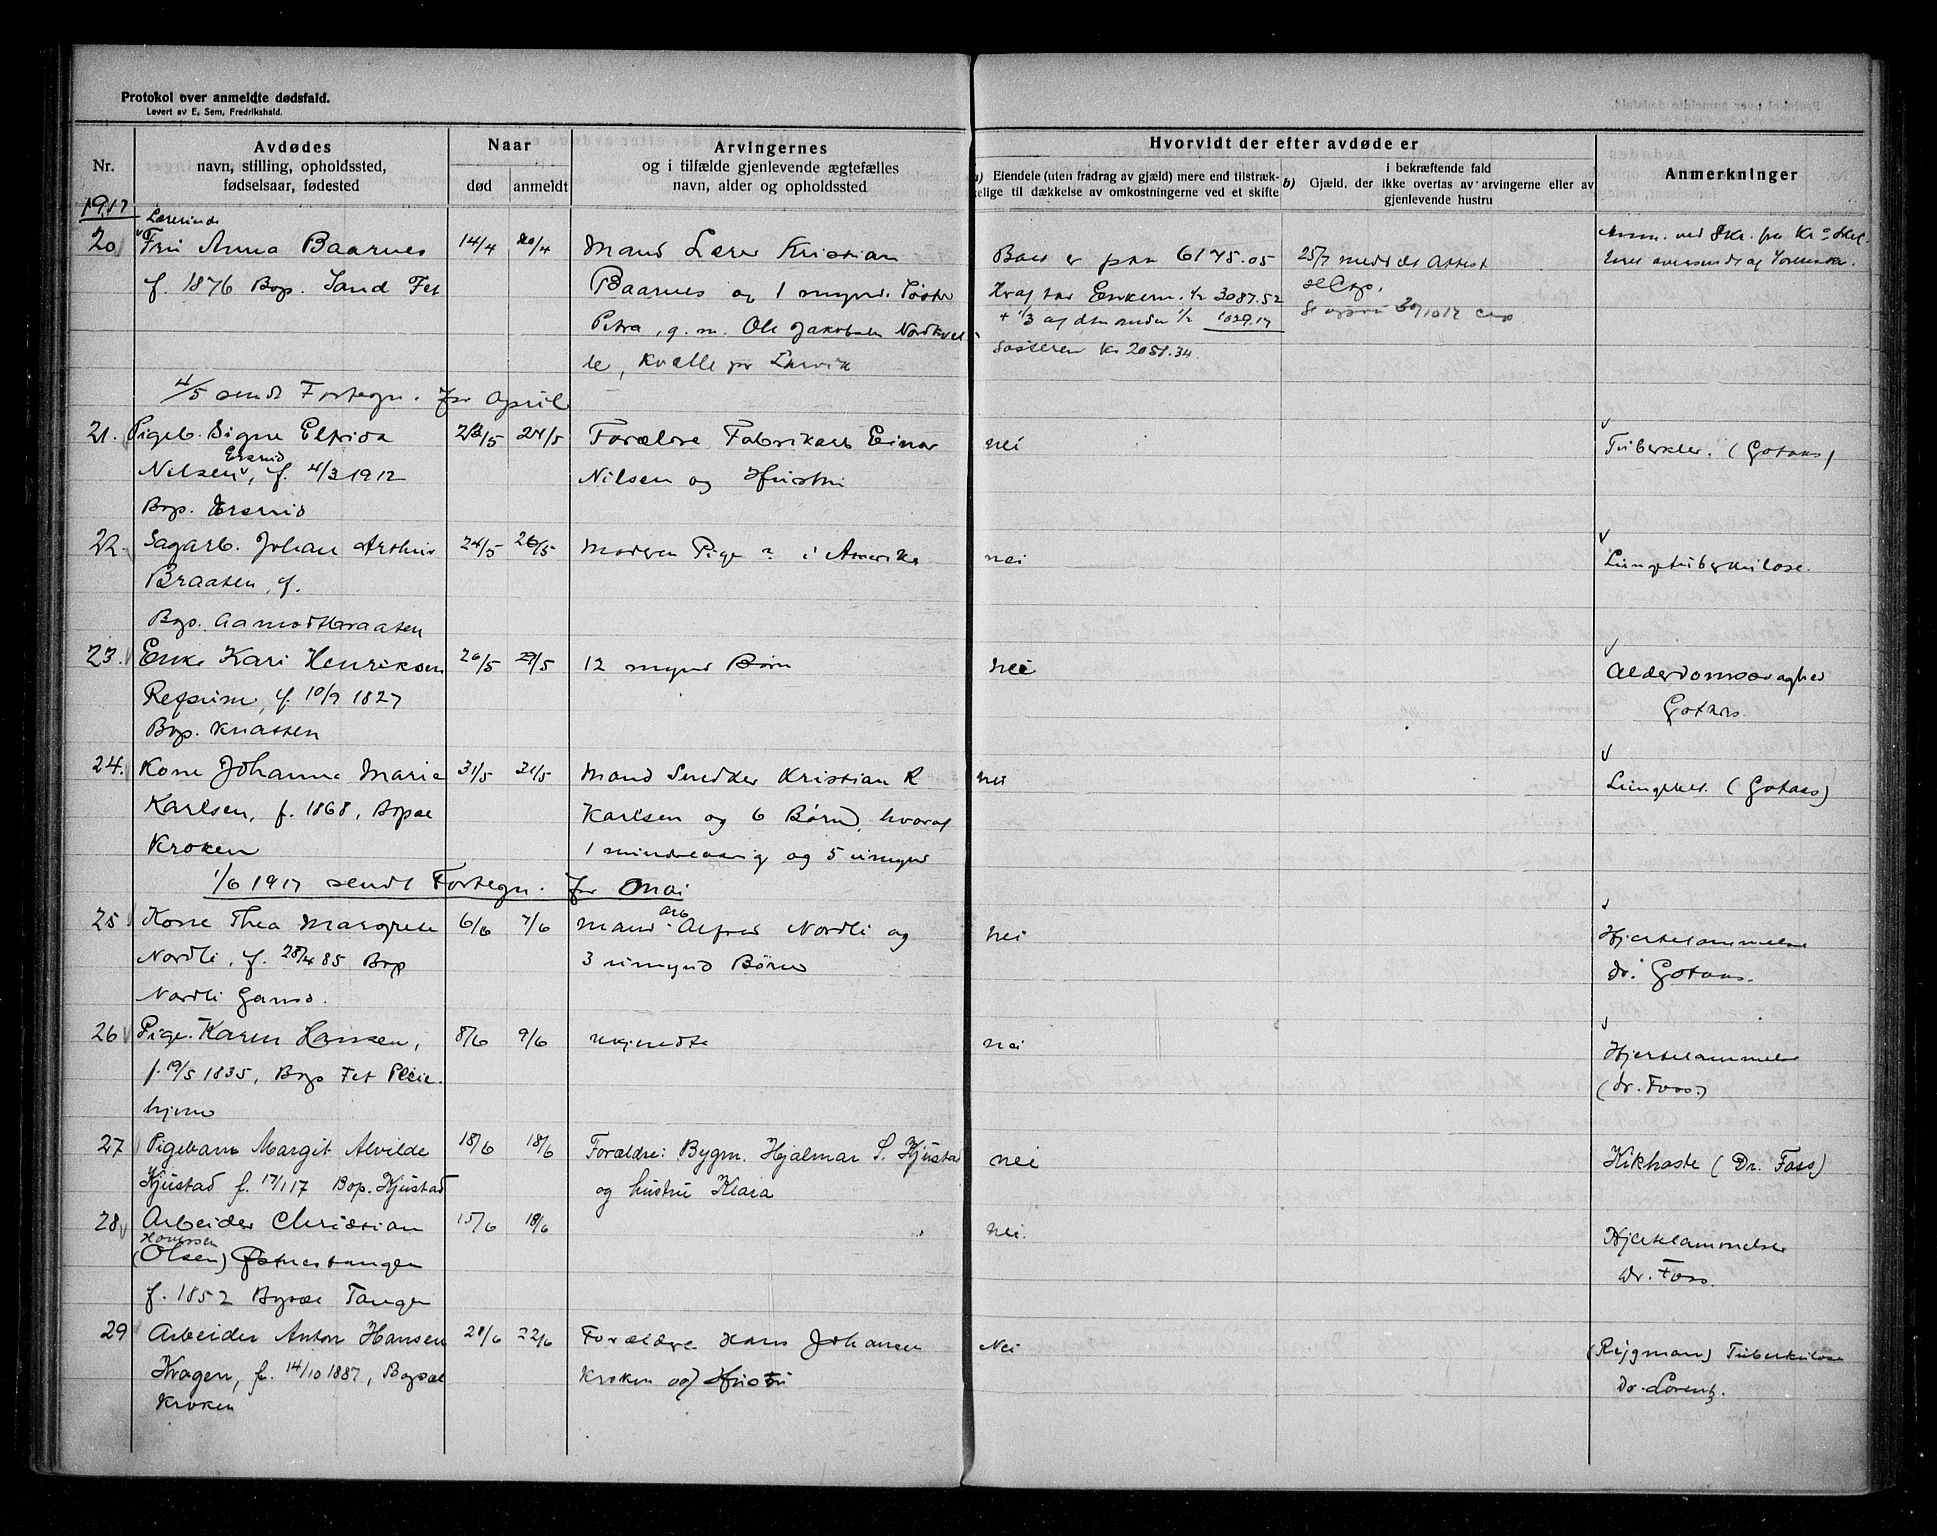 Protokol over anmeldte dødsfald.
Levert av E. Sem, Fredrikshald.
Nr.
Avdødes
navn, stilling, opholdssted,
fødselsaar, fødested
Naar
død
anmeldt
Arvingernes
og i tilfælde gjenlevende ægtefælles
navn, alder og opholdssted
Hvorvidt der efter avdøde er
a) Eiendele (uten fradrag av gjæld) mere end tilstræk-
kelige til dækkelse av omkostningerne ved et skifte
b) Gjæld, der i bekræftende fald
ikke overtas av arvingerne eller av
gjenlevende hustru
Anmerkninger
1917
Lærerinde
20 Fru Anna Baarnes 14/4 20/4 Mand Lærer Kristian
f. 1876 Bop. Sand Fet Baarnes og 1 mynd. Søster
Petra, g. m. Ole Jakobsen Nordkvel
le, Kvelle pr Larvik
Boet er paa 6175.05
Hvaf tar Enkem. 1/2 3087.52
+ 1/3 af den anden 1/2 1029.17
Søsteren kr 2058.34
25/7 medd. Attest
30/10 17
4/5 sendt Fortegn. for April
21. Pigeb. Signe Elfrida 23/5 24/5 Forældre Fabrikarb Einar nei Tuberkler. (Gotaas)
Ersrud
Nilsen, f. 4/3 1912 Nilsen og Hustru
Bop. Ersrud
22. Sagarb. Johan Arthur 24/5 26/5 Moderen Pige ? i Amerika nei Lungetuberkulose.
Braaten, f.
Bop. Aamodtbraaten
23. Enke Kari Henriksen 26/5 29/5 12 mynd Børn nei Alderdomssvaghed
Refsum, f. 10/9 1827 Gotaas.
Bop. Knatten
24. Kone Johanne Marie 31/5 31/5 Mand Snedker Kristian R nei Lungebet. (Gotaas)
Karlsen, f. 1868, Bopæl Karlsen og 6 Børn, hvoraf
Kroken 1 mindreaarig og 5 umynd
1/6 1917 sendt Fortegn. for Mai
25. Kone Thea Margrete 6/6 7/6 Mand Arb Alfred Nordli og nei Hjertelammelse
Nordli, f. 28/4 85 Bop 3 umynd Børn dr. Gotaas.
Nordli Gansd.
26 Pige Karen Hansen, 8/6 9/6 ukjendte nei Hjertelammelse
f. 19/5 1835, Bop Fet Pleie- (dr. Foss.)
hjem
27 Pigebarn Margit Alvilde 18/6 18/6 Forældre: Bygm. Hjalmar S. Hjustad nei Kikhoste (Dr. Foss)
Hjustad f. 17/1 17 Bop. Hjustad og hustru Klara
28 Arbeider Christian 15/6 18/6 nei. Hjertelammelse
(Olsen) Østnestangen dr. Foss.
f. 1852 Bopæl Tangen
29 Arbeider Anton Hansen 21/6 22/6 Forældre Hans Johansen Nei (Rygmarv) Tuberkulose
Kragen, f. 14/10 1887, Bopæl Kroken og Hustru Dr. Lorentz.
Kroken